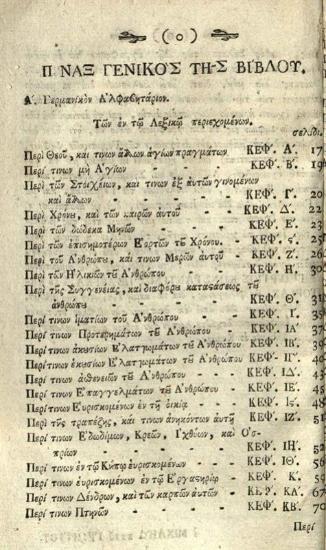 ( 0 )
Π ΝΑΞ ΓΕΝΙΚΟ'Σ ΤΗ͂Σ ΒΙΒΛΟΥ.
Α'. Γερμανικὸν Α'λφαβητάριον.
Τῶν ἐν τῷ Λεξικῷ περιεχομένων.
σελίδι.
Περὶ Θεοῦ, καὶ τινων ἄλλων ἁγίων πραγμάτων ΚΕΦ'. Α'. 17
Περί τινων μὴ Α'γίων - - - ΚΕΦ'. Β'. 19
Περὶ τῶν Στοιχείων, καὶ τινων ἐξ αὐτῶν γινομένων
καὶ ἄλλων - - - ΚΕΦ'. Γ'. 20
Περὶ Χρόνου, καὶ τῶν καιρῶν αὐτοῦ - ΚΕΦ'. Δ'. 22
Περὶ τῶν δώδεκα Μηνῶν - - ΚΕΦ'. Ε'. 23
Περὶ τῶν ἐπισημοτέρων Ε'ορτῶν τοῦ Χρόνου. ΚΕΦ'. ς'. 25
Περὶ τοῦ Α'νθρώπου, καὶ τινων Μερῶν αὐτοῦ ΚΕΦ'. Ζ'. 26
Περὶ τῶν Η'λικιῶν τοῦ Α'νθρώπου - ΚΕΦ'. Η'. 30
Περὶ τῆς Συγγενείας, καὶ διαφόρου καταστάσεως τοῦ
ἀνθρώπου - - - ΚΕΦ'. Θ'. 31
Περί τινων ἱματίων τοῦ Α'νθρώπου - ΚΕΦ'. Ι'. 35
Περί τινων Προτερημάτων τοῦ Α'νθρώπου ΚΕΦ'. ΙΑ' 37
Περί τινων ἀκουσίων Ε'λαττωμάτων τοῦ Α'νθρώπου ΚΕΦ'. ΙΒ'. 39
Περί τινων ἑκουσίων Ε'λαττωμάτων τοῦ Α'νθρώπου ΚΕΦ'. ΙΓ'. 40
Περί τινων ἀσθενειῶν τοῦ Α'νθρώπου - ΚΕΦ'. ΙΔ'. 43
Περί τινων Ε'παγγελμάτων τοῦ Α'νθρώπου ΚΕΦ'. ΙΕ'. 45
Περί τινων Εὑρισκομένων ἐν τῇ οἰκίᾳ - ΚΕΦ'. Ις'. 48
Περὶ τῆς τραπέζης, καὶ τινων ἀνηκόντων αὐτῇ ΚΕΦ'. ΙΖ'. 51
Περί τινων Ε'δωδίμων, Κρεῶν, Ι'χθύων, καὶ Ο'σ-
πρίων - - - ΚΕΦ'. ΙΗ'. 5
Περί τινων ἐν τῷ Κήπῳ εὑρισκομένων - ΚΕΦ'. ΙΘ'. 56
Περί τινων εὑρισκομένων ἐν τῷ Ε'ργαστηρίῳ ΚΕΦ'. Κ'. 59
Περί τινων Δένδρων, καὶ τῶν καρπῶν αὐτῶν - ΚΕΦ'. ΚΑ'. 67
Περί τινων Πτηνῶν - - - ΚΕΦ'. ΚΒ'. 70
Περὶ